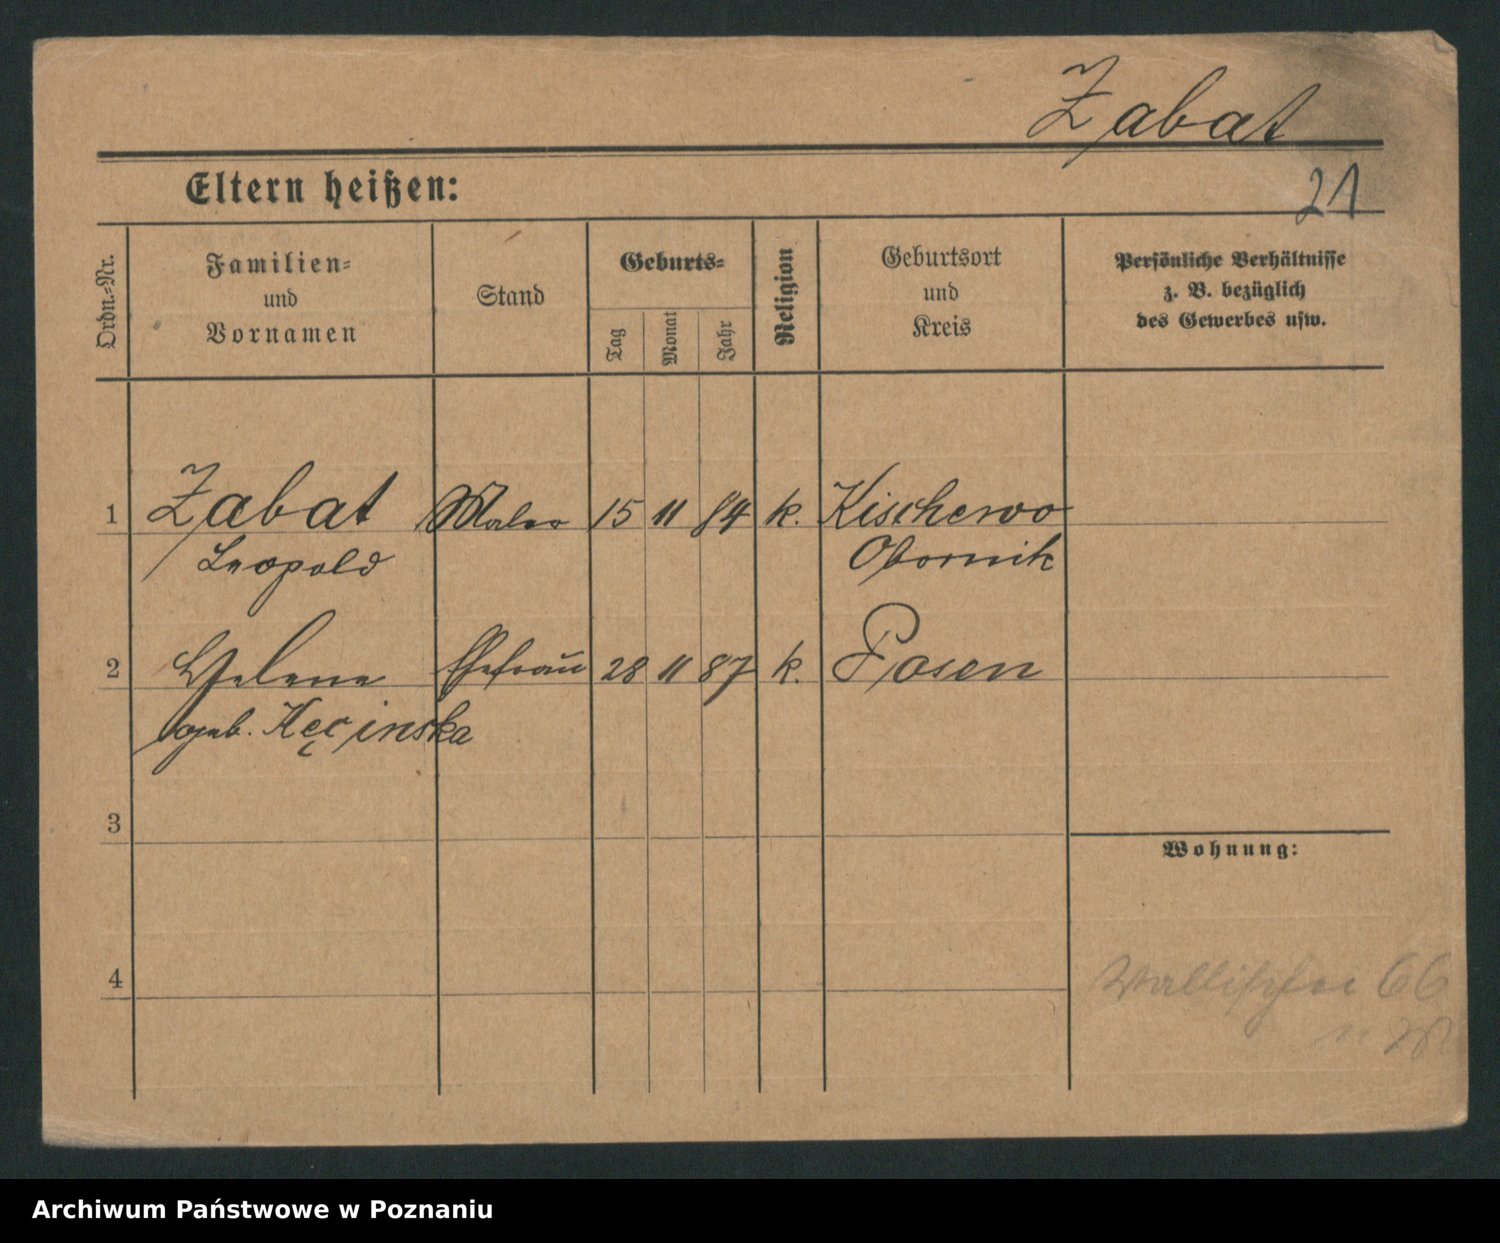 Zabat
Eltern heißen:
21
Ordn.-Nr.
Familien-
und
Vornamen
Stand
Geburts-
Tag
Monat
Jahr
Religion
Geburtsort
und
Kreis
Persönliche Verhältnisse
z. B. bezüglich
des Gewerbes usw.
1 Zabat Maler 15 11 84 k. Kischewo
Leopold Obornik
2 Helene Ehefrau 28 11 87 k. Posen
geb. Kęcinska
3
Wohnung:
4
Wallischei 66
Archiwum Państwowe w Poznaniu